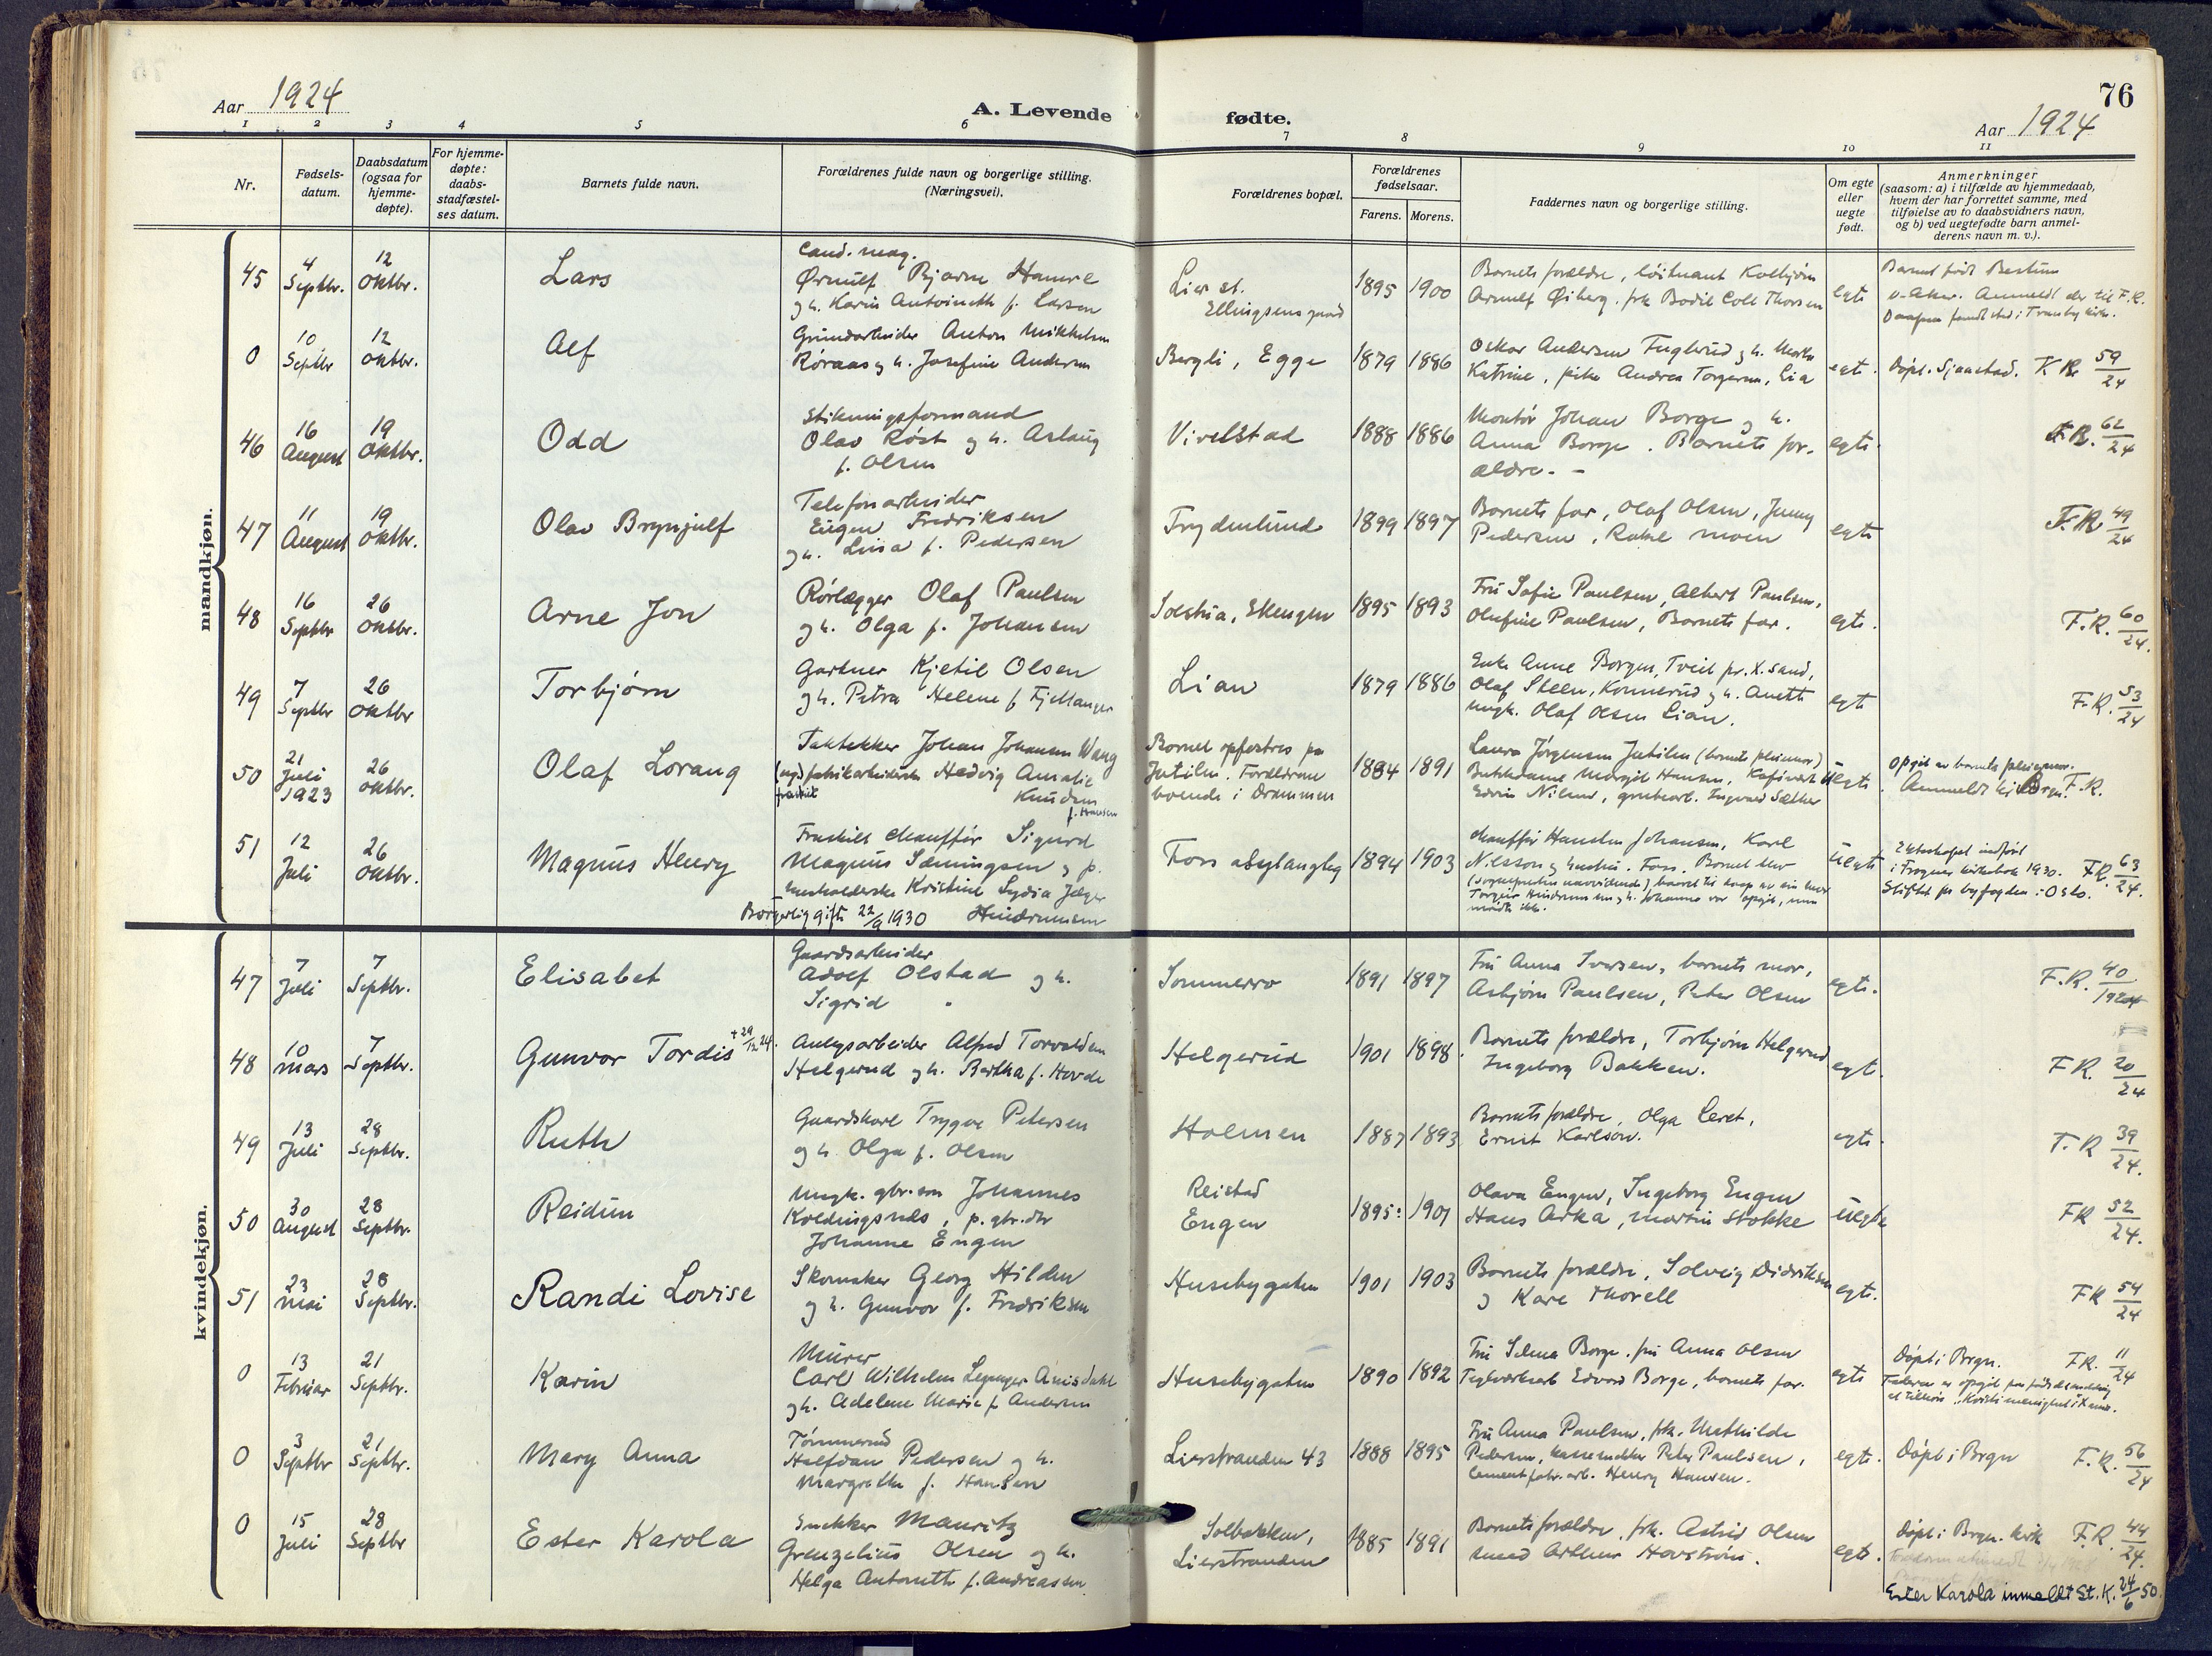 76
Aar 1924
A. Levende fødte.
Aar 1924
1 2 3 4 5 6 7 8 9 10 11
Nr.
Fødsels-
datum.
Daabsdatum
(ogsaa for
hjemme-
døpte).
For hjemme-
døpte:
daabs-
stadfæstel-
ses datum.
Barnets fulde navn.
Forældrenes fulde navn og borgerlige stilling.
(Næringsvei).
Forældrenes bopæl.
Forældrenes
fødselsaar.
Farens. Morens.
Faddernes navn og borgerlige stilling.
Om egte
eller
uegte
født.
Anmerkninger
(saasom: a) i tilfælde av hjemmedaab,
hvem der har forrettet samme, med
tilføielse av to daabsvidners navn,
og b) ved uegtefødte barn anmel-
derens navn m. v.).
mandkjøn.
45
4 Septbr.
12 Oktbr.
Lars
Cand. mag.
Ørnulf Bjarne Hamre
og h. Karin Antoinette f. Larsen
Lier st.
Ellingsens gaard
1895 1900
Barnets forældre, løitnant Kolbjørn
Arnulf Øiberg, frk Bodil Coll Thorsen
egte
Barnet født Bestum
v. Aker. Anmeldt der til F.R.
Daapen fandt sted i Tranby kirke.
0
10 Septbr
12 Oktbr.
Alf
Grundarbeider Anton Mikkelsen
Røraas og h. Josefine Andersen
Bergli, Egge
1879 1886
Oskar Andersen Fuglerud og h. Marta
Katrine, pike Andrea Torgersen, Lia
egt.
Døpt. Sjaastad. K R. 59/24
46
16 August
19 Oktbr.
Odd
Stikningsformand
Olav Røst og h. Aslaug
f. Olsen
Vivelstad
1888 1886
Montør Johan Borge og h.
Anna Borge. Barnets for-
ældre. -
egte.
F.R. 62/24
47
11 August
19 Oktbr.
Olav Brynjulf
Telefonarbeider
Eugen Fredriksen
og h. Lina f. Pedersen
Frydenlund
1899 1897
Barnets far, Olaf Olsen, Jenny
Pedersen, Rakel Moen
egte
F.R. 49/24
48
16 Septbr
26 Oktbr.
Arne Jon
Rørlægger Olaf Paulsen
og h. Olga f. Johansen
Solstua, Ekengen
1895 1893
Fru Sofie Paulsen, Albert Paulsen,
Olufine Paulsen, Barnets far.
egte.
F.R. 60/24.
49
7 Septbr
26 Oktbr
Torbjørn
Gartner Kjetil Olsen
og h. Petra Helene f. Fjellanger
Lian
1879 1886
Enke Anne Borgen, Tveit pr. X.sand,
Olaf Steen, Konnerud og h. Anette
ungk. Olaf Olsen Lian.
egt
F.R. 53/24
50
21 Juli 1923
26 Oktbr.
Olaf Lorang
Taktekker Johan Johansen Wang
fabrikarbeiderske Hedvig Amalie
fraskilt Knudsen
f. Hansen
Barnet opfostres pa
Jutilen. Forældrene
boende i Drammen
1884 1891
Laura Jørgensen Jutilen (barnets pleiemor)
Margit Hansen,
Edvin Nilsen, grubearb. Ingvald Sæther
Uegte.
Opgit av barnets pleiemor.
Anmeldt til Brgn. F.R.
51
12 Juli
26 Oktbr.
Magnus Henry
Fraskilt chauffør Sigurd
Magnus Sæmingsen og p.
husholderske Kristine Lydia Jæger
Hindrumsen
Borgerlig gift 22/9 1930
Fors abylangleg
1894 1903
Chauffør Johansen, Karl
Nilsson og Fors. Barnet blev
uegte
Ekteskapet indført
i Frogner kirkebok 1930. F.R. 63/24.
Stiftet for byfogden i Oslo.
kvindekjøn.
47
7 Juli
7 Septbr.
Elisabet
Gaardsarbeider
Adolf Olstad og h.
Sigrid "
Sommerro
1891 1897
Fru Anna Iversen, barnets mor,
Asbjørn Paulsen, Peter Olsen
egte.
F.R. 40/1924
48
10 Mars
7 Septbr.
Gunvor Tordis + 29/12 24.
Anlegsarbeider Alfred Torvaldsen
Helgerud og h. Bertha f. Hovde
Helgerud
1901 1898.
Barnets forældre, Torbjørn Helgerud
Ingeborg Bakken.
egt.
F.R. 20/24
49
13 Juli
28 Septbr.
Ruth
Gaardskarl Trygve Petersen
og h. Olga f. Olsen
Holmen
1887 1893
Barnets forældre, Olga Leret,
Ernst Karlson.
egte.
F.R 39/24.
50
30 August
28 Septbr.
Reidun
Ungk. gbr.søn Johannes
Koldingsnes, p. gbr.dtr
Johanne Engen
Reistad
Engen
1895: 1901
Olava Engen, Ingeborg Engen
Hans Arka, Martin Stokke
uegte
FR 52/24.
51
23 Mai
28 Septbr.
Randi Lovise
Skomaker Georg Hilden
og h. Gunvor f. Fredriksen
Husebygaten
1901 1903
Barnets forældre, Solveig Didriksen
og Kåre Thorell
egte.
FR 54/24
0
13 Februar
21 Septbr.
Karin
Murer
Carl Wilhelm Amisdahl
og h. Adelene Marie f. Andersen
Husebygaten
1890 1892
Fru Selma Borge, fru Anna Olsen
Teglverksarb Edvard Borge, barnets far.
egte
Døpt i Brgn. F.R. 11/24
0
3 Septbr
21 Septbr.
Mary Anna
Tømmermd
Halfdan Pedersen og h.
Margrethe f. Hansen
Lierstranden 43
1888 1895
Fru Anna Paulsen, frk. Mathilde
Pedersen, Peter Paulsen,
Cementfabr.arb. Henry Hansen.
egte.
Døpt i Brgn F.R. 56/24
0
15 Juli
28 Septbr
Ester Karola
Snekker Mauritz
Grenzelius Olsen og h.
Helga Antonette f. Andreassen
Solbakken,
Lierstranden
1885 1891
Barnets forældre, frk. Astrid Olsen
Arthur Havstrøm.
egte.
Døpt i Brgn. kirk F.R. 44/24.
Ester Karola innmeldt St. K. 24/6 50.